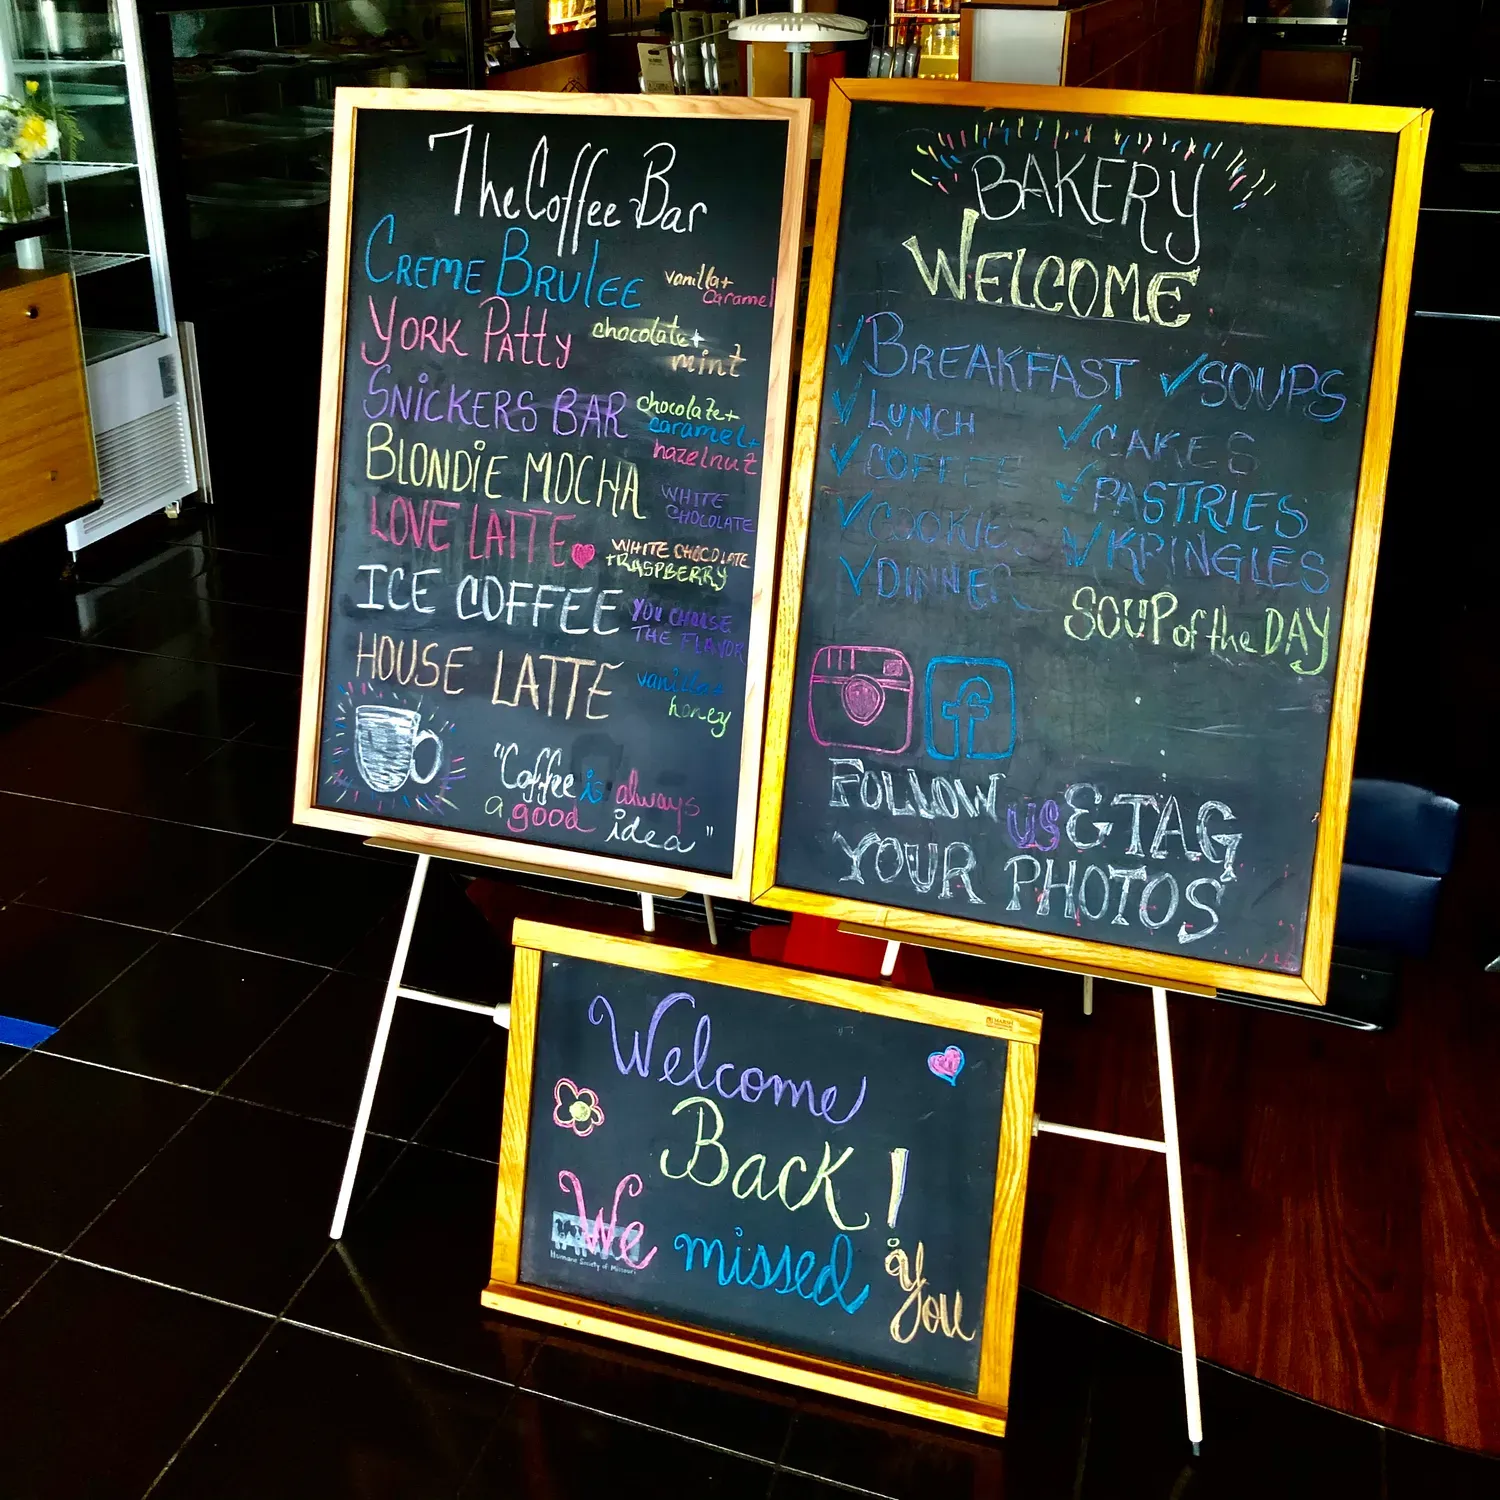 The Coffee Bar
CREME BRULEE vanilla+
caramel
YORK PATTY chocolate+
mint
SNICKERS BAR chocolate+
caramel+
hazelnut
BLONDIE MOCHA WHITE
CHOCOLATE
LOVE LATTE WHITE CHOCOLATE
+RASPBERRY
ICE COFFEE YOU CHOOSE
THE FLAVOR
HOUSE LATTE vanilla+
honey
"Coffee is always
a good idea"
BAKERY
WELCOME
BREAKFAST SOUPS
LUNCH CAKES
COFFEE PASTRIES
COOKIES KRINGLES
DINNER
SOUP of the DAY
f
FOLLOW US & TAG
YOUR PHOTOS
Welcome
Back!
We missed you
Humane Society of Missouri